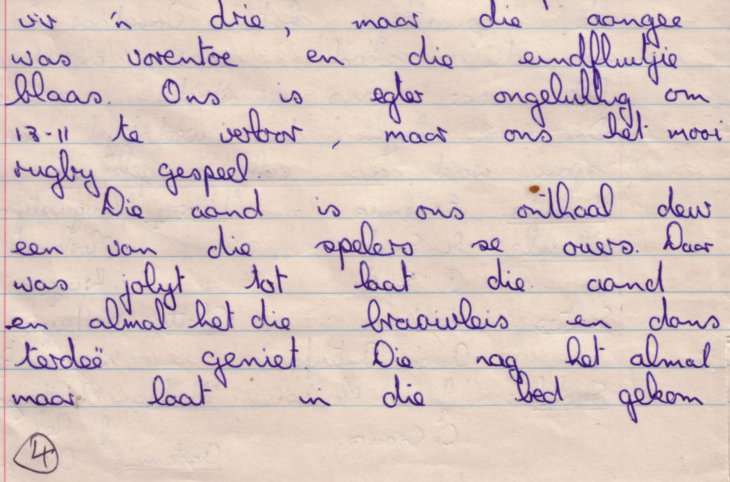 vir 'n drie, maar die aangee
was vorentoe en die eindfluitjie
blaas. Ons is egter ongelukkig om
13-11 te verloor, maar ons het mooi
rugby gespeel.
Die aand is ons onthaal deur
een van die spelers se ouers. Daar
was jolyt tot laat die aand
en almal het die braaivleis en dans
terdeë geniet. Die nag het almal
maar laat in die bed gekom
4